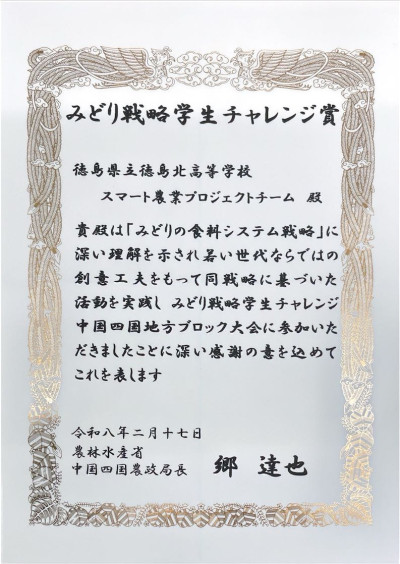 みどり戦略学生チャレンジ賞
徳島県立徳島北高等学校
スマート農業プロジェクトチーム 殿
貴殿は「みどりの食料システム戦略」に
深い理解を示され若い世代ならではの
創意工夫をもって同戦略に基づいた
活動を実践し みどり戦略学生チャレンジ
中国四国地方ブロック大会に参加いた
だきましたことに深い感謝の意を込めて
これを表します
令和八年二月十七日
農林水産省
中国四国農政局長 郷 達也